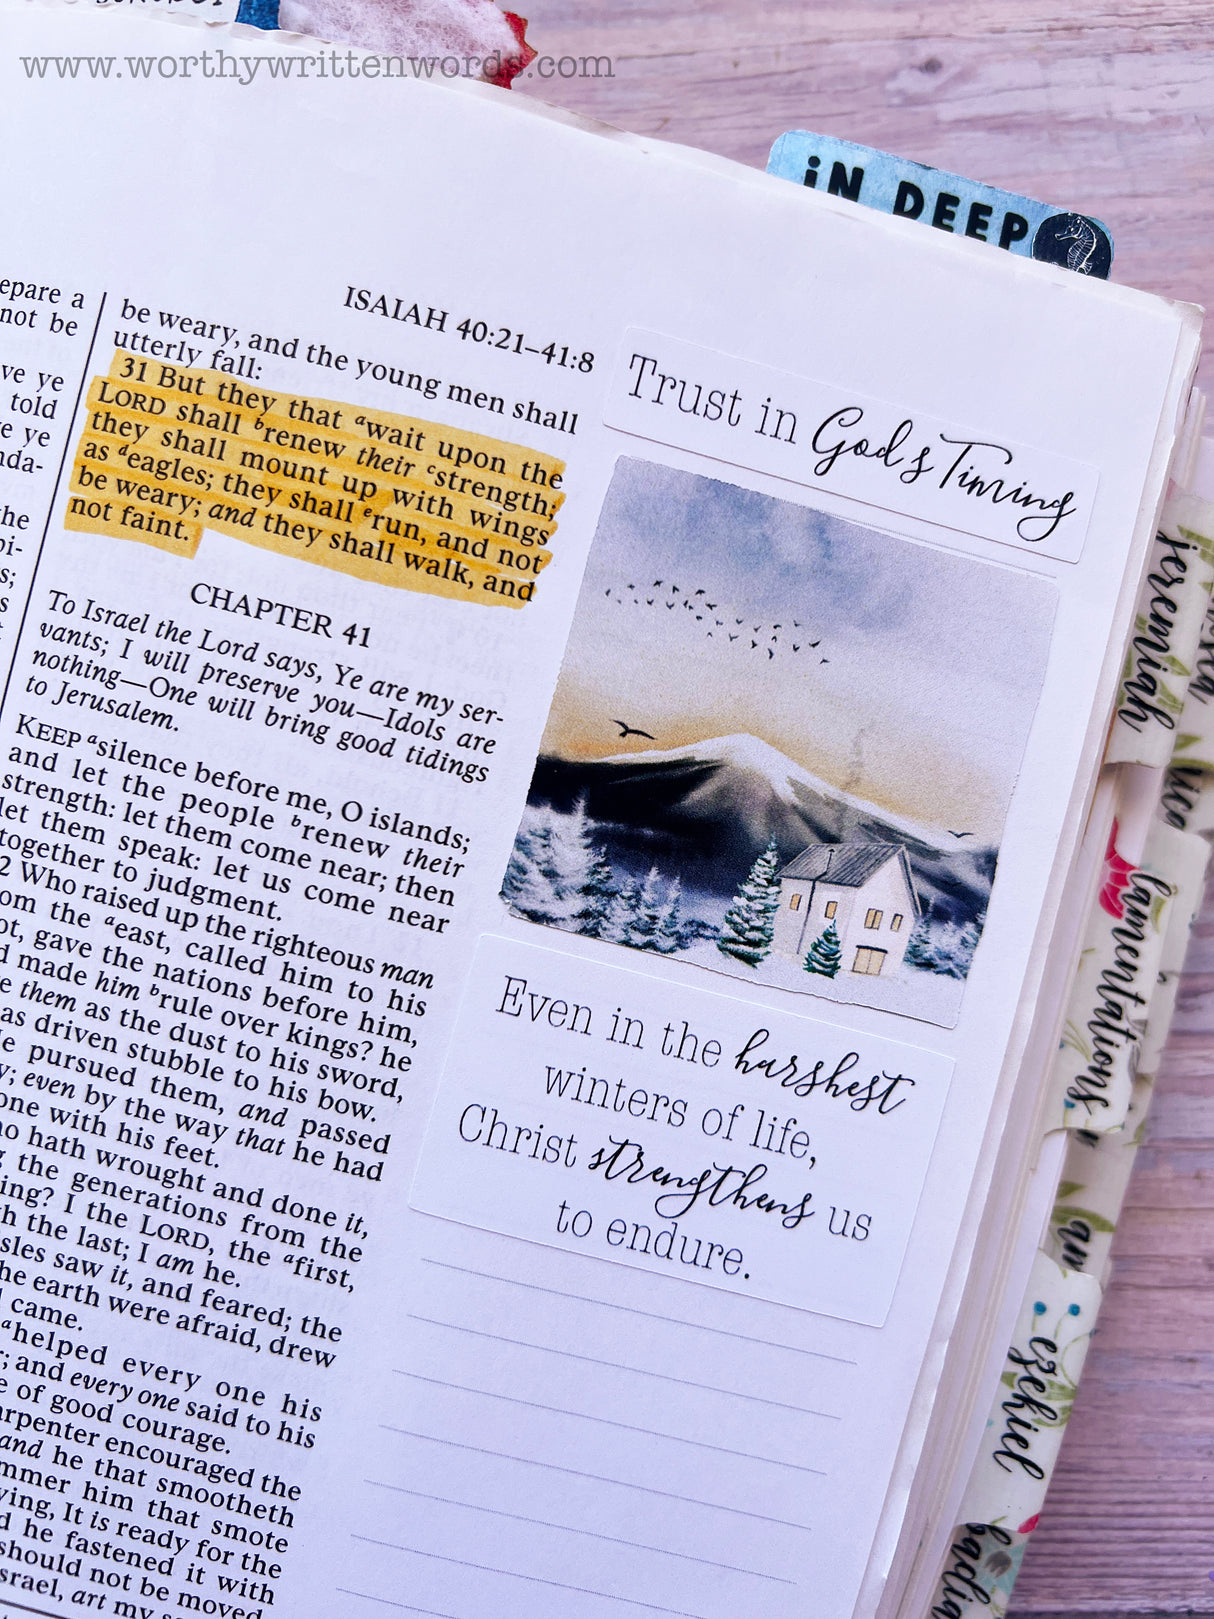 www.worthywrittenwords.com
iN DEEP
ISAIAH 40:21–41:8
epare a
not be
ve ye
told
ye
nda-
the
be weary, and the young men shall
utterly fall:
31 But they that ᵃwait upon the
LORD shall ᵇrenew their ᶜstrength;
they shall mount up with wings
as ᵈeagles; they shall ᵉrun, and not
be weary; and they shall walk, and
not faint.
CHAPTER 41
To Israel the Lord says, Ye are my ser-
vants; I will preserve you—Idols are
nothing—One will bring good tidings
to Jerusalem.
KEEP ᵃsilence before me, O islands;
and let the people ᵇrenew their
strength: let them come near; then
let them speak: let us come near
together to judgment.
2 Who raised up the righteous man
om the ᵃeast, called him to his
ot, gave the nations before him,
d made him ᵇrule over kings? he
e them as the dust to his sword,
as driven stubble to his bow.
He pursued them, and passed
y; even by the way that he had
one with his feet.
ho hath wrought and done it,
g the generations from the
ing? I the LORD, the ᵃfirst,
h the last; I am he.
sles saw it, and feared; the
he earth were afraid, drew
came.
ᵃhelped every one his
r; and every one said to his
e of good courage.
arpenter encouraged the
and he that smootheth
mmer him that smote
ying, It is ready for the
d he fastened it with
should not be moved.
srael, art my
Trust in God's Timing
Even in the harshest
winters of life,
Christ strengthens us
to endure.
jeremiah
lamentations
ezekiel